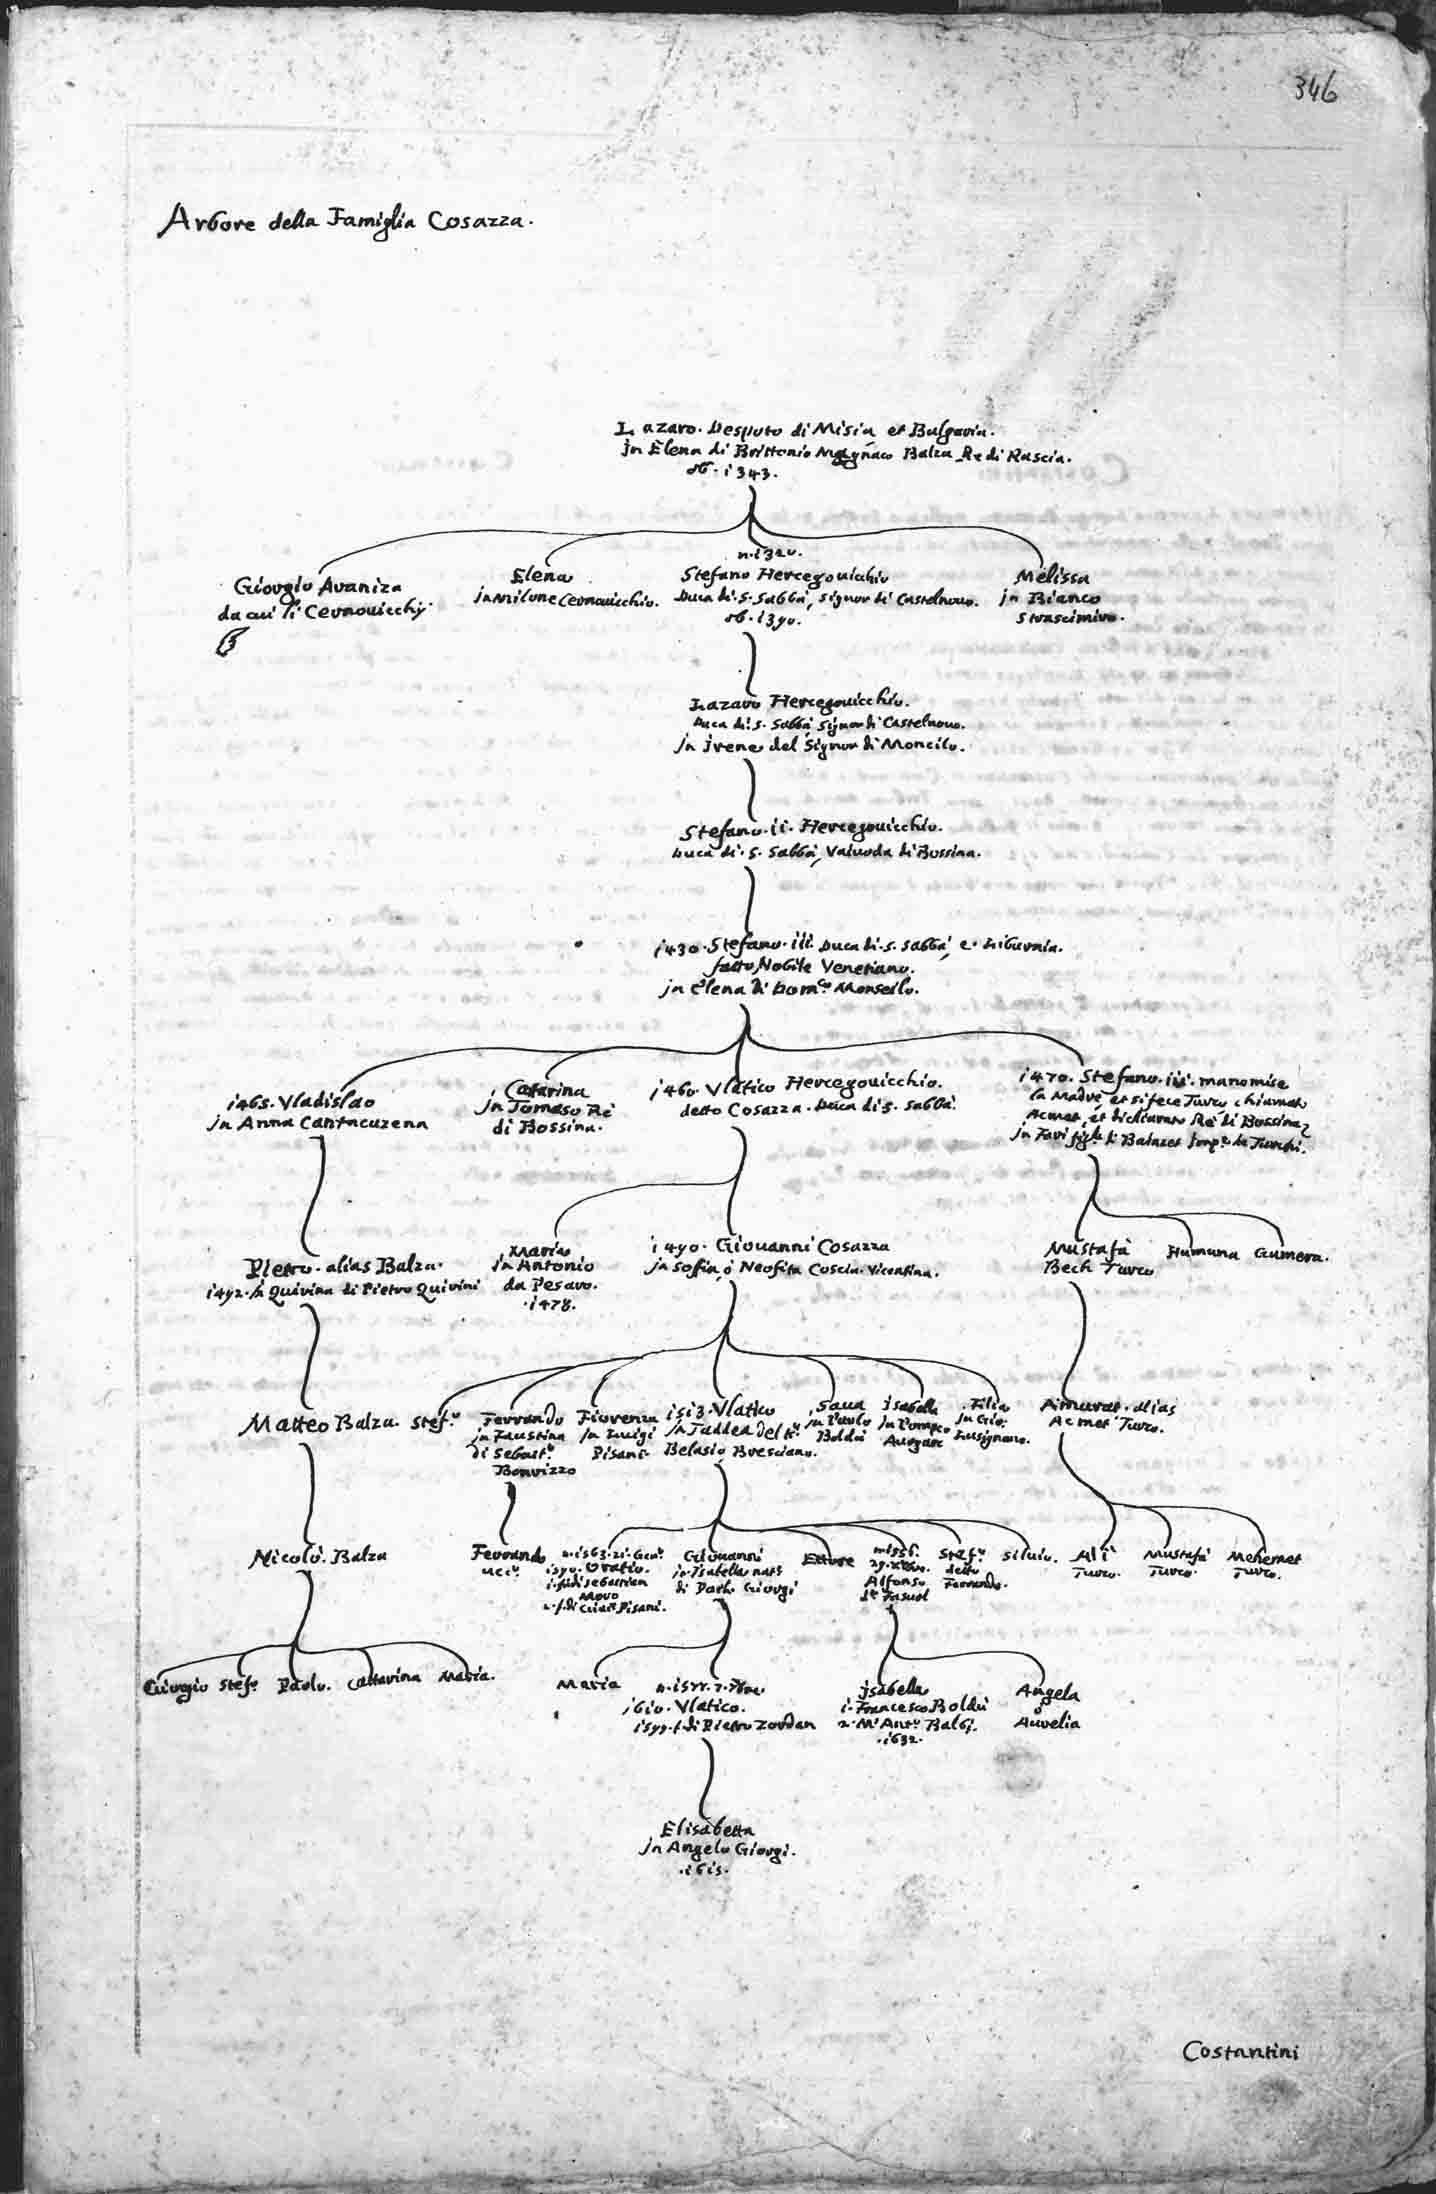 346
Arbore della Famiglia Cosazza.
Lazaro. Despoto di Misia et Bulgaria.
jn Elena di Brittonio Balza Re di Rascia.
ob. i343.
Giorgio Avaniza
da cui li Cernouicchij
Elena
jn Milone Cernouicchio.
n. i320.
Stefano Hercegouichio
Duca di. S. Sabba, Signor di Castelnouo.
ob. i390.
Melissa
jn Bianco
Strascimiro.
Lazaro Hercegouicchio.
Duca di. S. Sabba, Signor di Castelnouo.
jn jrene del Signor di Moncilo.
Stefano. ii. Hercegouicchio.
Duca di. S. Sabba, Vaiuoda di Bossina.
i430. Stefano. iii. Duca di. S. Sabba, e. Liburnia.
fatto Nobile Venetiano.
jn Elena di Monsello.
i465. Vladislao
jn Anna Cantacuzena
Catarina
jn Tomaso Re
di Bossina.
i460. Vlatico Hercegouicchio.
detto Cosazza. Duca di S. Sabba.
i470. Stefano. manomise
la Madre, et si fece Turco chiamato
Acmet, et dichiarato Re di Bossina
jn di Baiazet de Turchi.
Pietro. alias Balza.
i492. jn Quirina di Pietro Quirini
Maria
jn Antonio
da Pesaro.
.i478.
i490. Giouanni Cosazza
jn Soffia, o Neofita Coscia. Vicentina.
Mustafà
Bech Turco
Humuna
Gumera.
Matteo Balza.
Stef.o
Ferrando
jn Faustina
di Sebast.o
Bonrizzo
Fiorenza
jn Luigi
Pisani.
i5i3. Vlatico
jn Taddea del
Belasio, Bresciano.
Saua
jn Paulo
Boldù
jsabella
jn Pompeo
Auogaro
Filia
jn Gio:
Lusignano.
Amurat. alias
Acmet Turco.
Nicolò. Balza
Ferrando
ucc.o
n. i563. 2i. Gen.o
i590. Oratio.
i. f. di Sebastian
Moro
2. f. di Pisani.
Giouanni
jn Isabella nat.
di Giorgi
Ettore
n. i556.
29.
Alfonso
Stef.o
detto
Ferrando.
Siluio.
Alì
Turco.
Mustafà
Turco.
Mehemet
Turco.
Giorgio
Stef.o
Paolo.
Cattarina
Maria.
Maria
n. i577. 7. 7bre.
i6i0. Vlatico.
i599. f. di Pietro Zordan
jsabella
i. Francesco Boldù
2. M. Ant.o Balbi.
.i632.
Angela
o
Aurelia
Elisabetta
jn Angelo Giorgi.
.i6i5.
Costantini